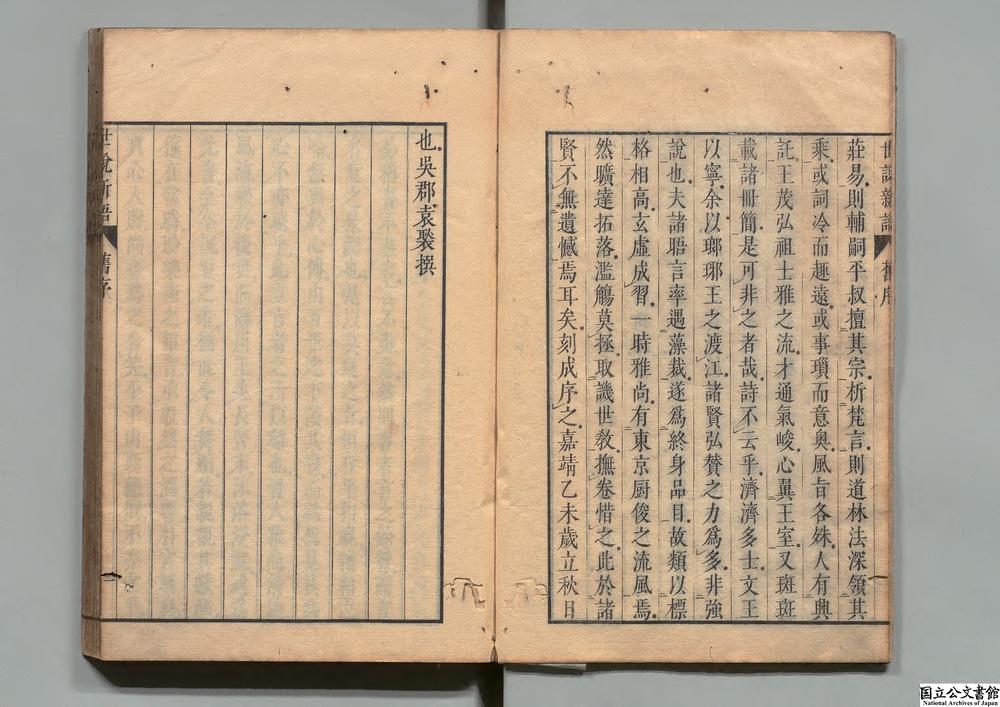 世說新語 舊序
莊易則輔嗣平叔擅其宗析梵言則道林法深領其
乘或詞冷而趣遠或事瑣而意奧風旨各殊人有興
託王茂弘祖士雅之流才通氣峻心翼王室又斑斑
載諸冊簡是可非之者哉詩不云乎濟濟多士文王
以寧余以瑯琊王之渡江諸賢弘贊之力爲多非強
說也夫諸晤言率遇藻裁遂爲終身品目故類以標
格相高玄虛成習一時雅尚有東京厨俊之流風焉
然曠達拓落濫觴莫拯取譏世敎撫卷惜之此於諸
賢不無遺憾焉耳矣刻成序之嘉靖乙未歲立秋日
也吳郡袁褧撰
世說新語 舊序
国立公文書館
National Archives of Japan